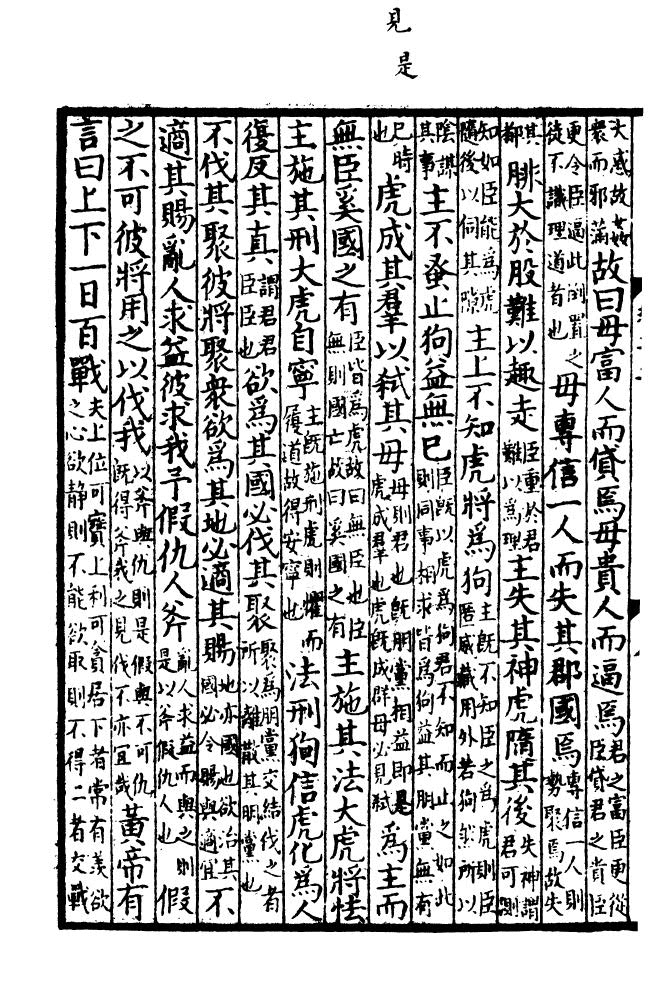 見
是
大惑故姦
衆而邪滿故曰毋富人而貸焉毋貴人而逼焉君之富臣更從臣貸君之貴臣
更令臣逼此倒置之徒不識理道者也毋專信一人而失其郡國焉專信一人則勢聚焉故失
其郡腓大於股難以趣走臣重於君難以爲理主失其神虎隋其後失神謂君可測
知如臣能爲虎隨後以伺其隙主上不知虎將爲狗主旣不知臣之爲虎則臣匿威藏用外若狗然所以
陰謀其事主不蚤止狗益無已臣旣以虎爲狗君不知而止之如此則同事相求皆爲狗益其朋黨無有
已時也虎成其羣以弒其毋毋則君也旣朋黨相益即是虎成羣也虎旣成群毋必見弒爲主而
無臣奚國之有臣皆爲虎故曰無臣也臣無則國亡故曰奚國之有主施其法大虎將怯
主施其刑大虎自寧主旣施刑虎則懼而履道故得安寧也法刑狥信虎化爲人
復反其真謂君君臣臣也欲爲其國必伐其聚聚爲朋黨交結伐之者所以離散其朋黨也
不伐其聚彼將聚衆欲爲其地必適其賜地亦國也欲治其國必令賜與適宜不
適其賜亂人求益彼求我予假仇人斧亂人求益而與之則是以斧假仇人也假
之不可彼將用之以伐我以斧與仇則是假與不可仇旣得斧我之見伐不亦宜哉黃帝有
言曰上下一日百戰夫上位可寶上利可貪居下者常有羨欲之心欲靜則不能欲取則不得二者交戰